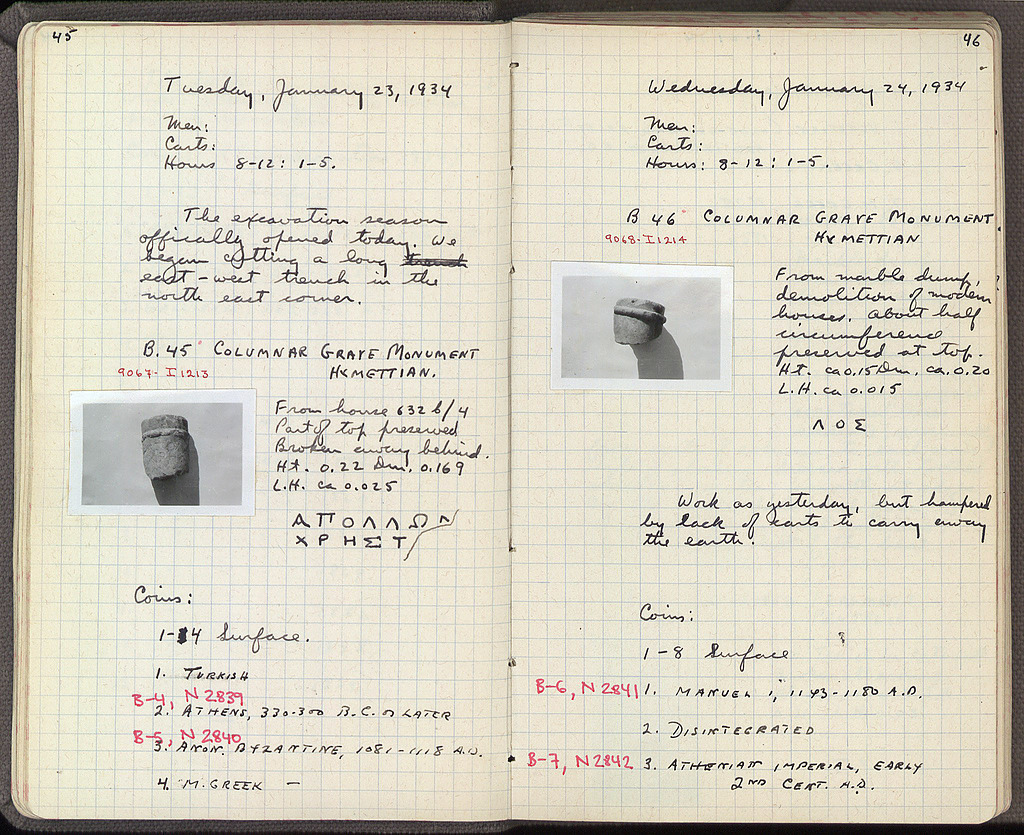 45
Tuesday, January 23, 1934
Men:
Carts:
Hours 8-12: 1-5.
The excavation season
offically opened today. We
began cutting a long trench
east-west trench in the
north east corner.
B. 45 COLUMNAR GRAVE MONUMENT
9067- I 1213
HYMETTIAN.
From house 632 b/4
Part of top preserved
Broken away behind.
Ht. 0.22 Dm. 0.169
L.H. ca 0.025
ΑΠΟΛΛΩΝ
ΧΡΗΣΤ
Coins:
1-4 Surface.
1. TURKISH
B-4, N 2839
2. ATHENS, 330-300 B.C. or LATER
B-5, N 2840
3. ANON. BYZANTINE, 1081-1118 A.D.
4. M. GREEK —
46
Wednesday, January 24, 1934
Men:
Carts:
Hours: 8-12: 1-5.
B 46 COLUMNAR GRAVE MONUMENT
9068- I 1214
HYMETTIAN
From marble dump,
demolition of modern
houses. About half
circumference
preserved at top.
Ht. ca 0.15 Dm. ca. 0.20
L.H. ca 0.015
ΛΟΣ
Work as yesterday, but hampered
by lack of carts to carry away
the earth.
Coins:
1-8 Surface
B-6, N 2841 1. MANUEL I, 1143-1180 A.D.
2. DISINTEGRATED
B-7, N 2842 3. ATHENIAN IMPERIAL, EARLY
2ND CENT. A.D.